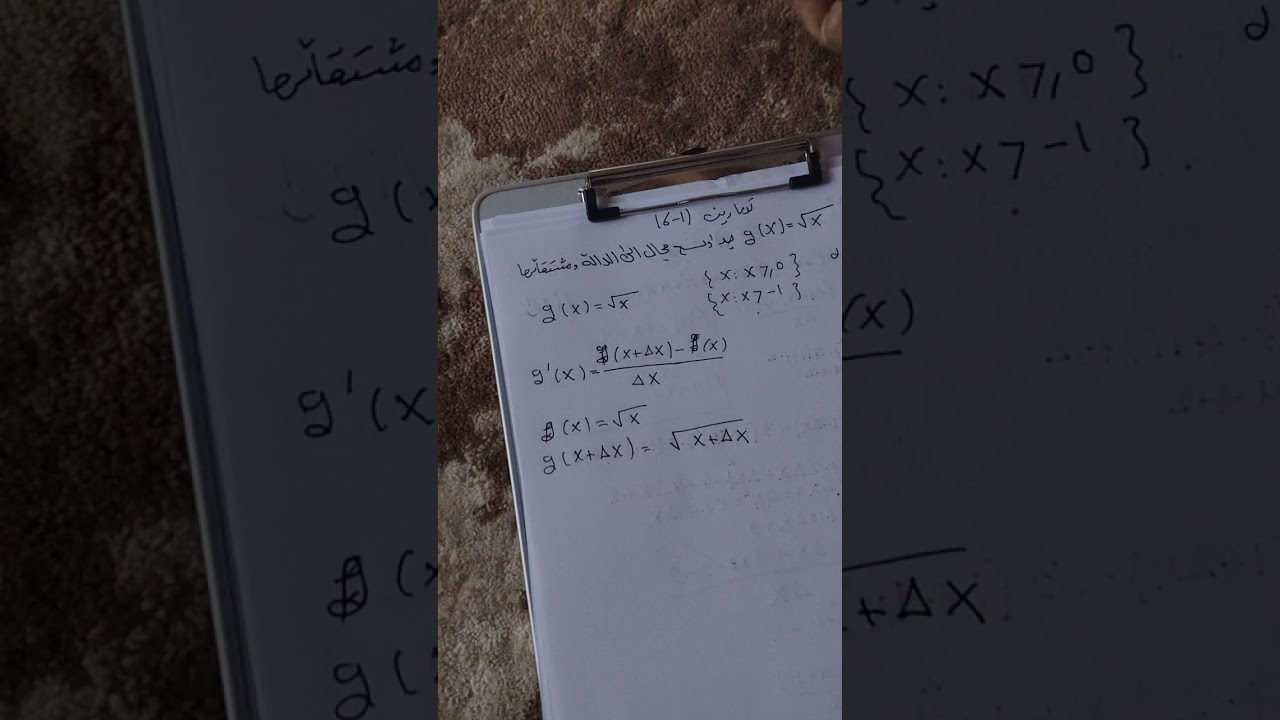 تمارين (1-6)
جد اوسع مجال الى الدالة ومشتقاتها g(x)=√x
g(x)=√x {x:x≥0}
{x:x>-1}
g'(x)=g(x+Δx)-g(x)/Δx
g(x)=√x
g(x+Δx)= √x+Δx